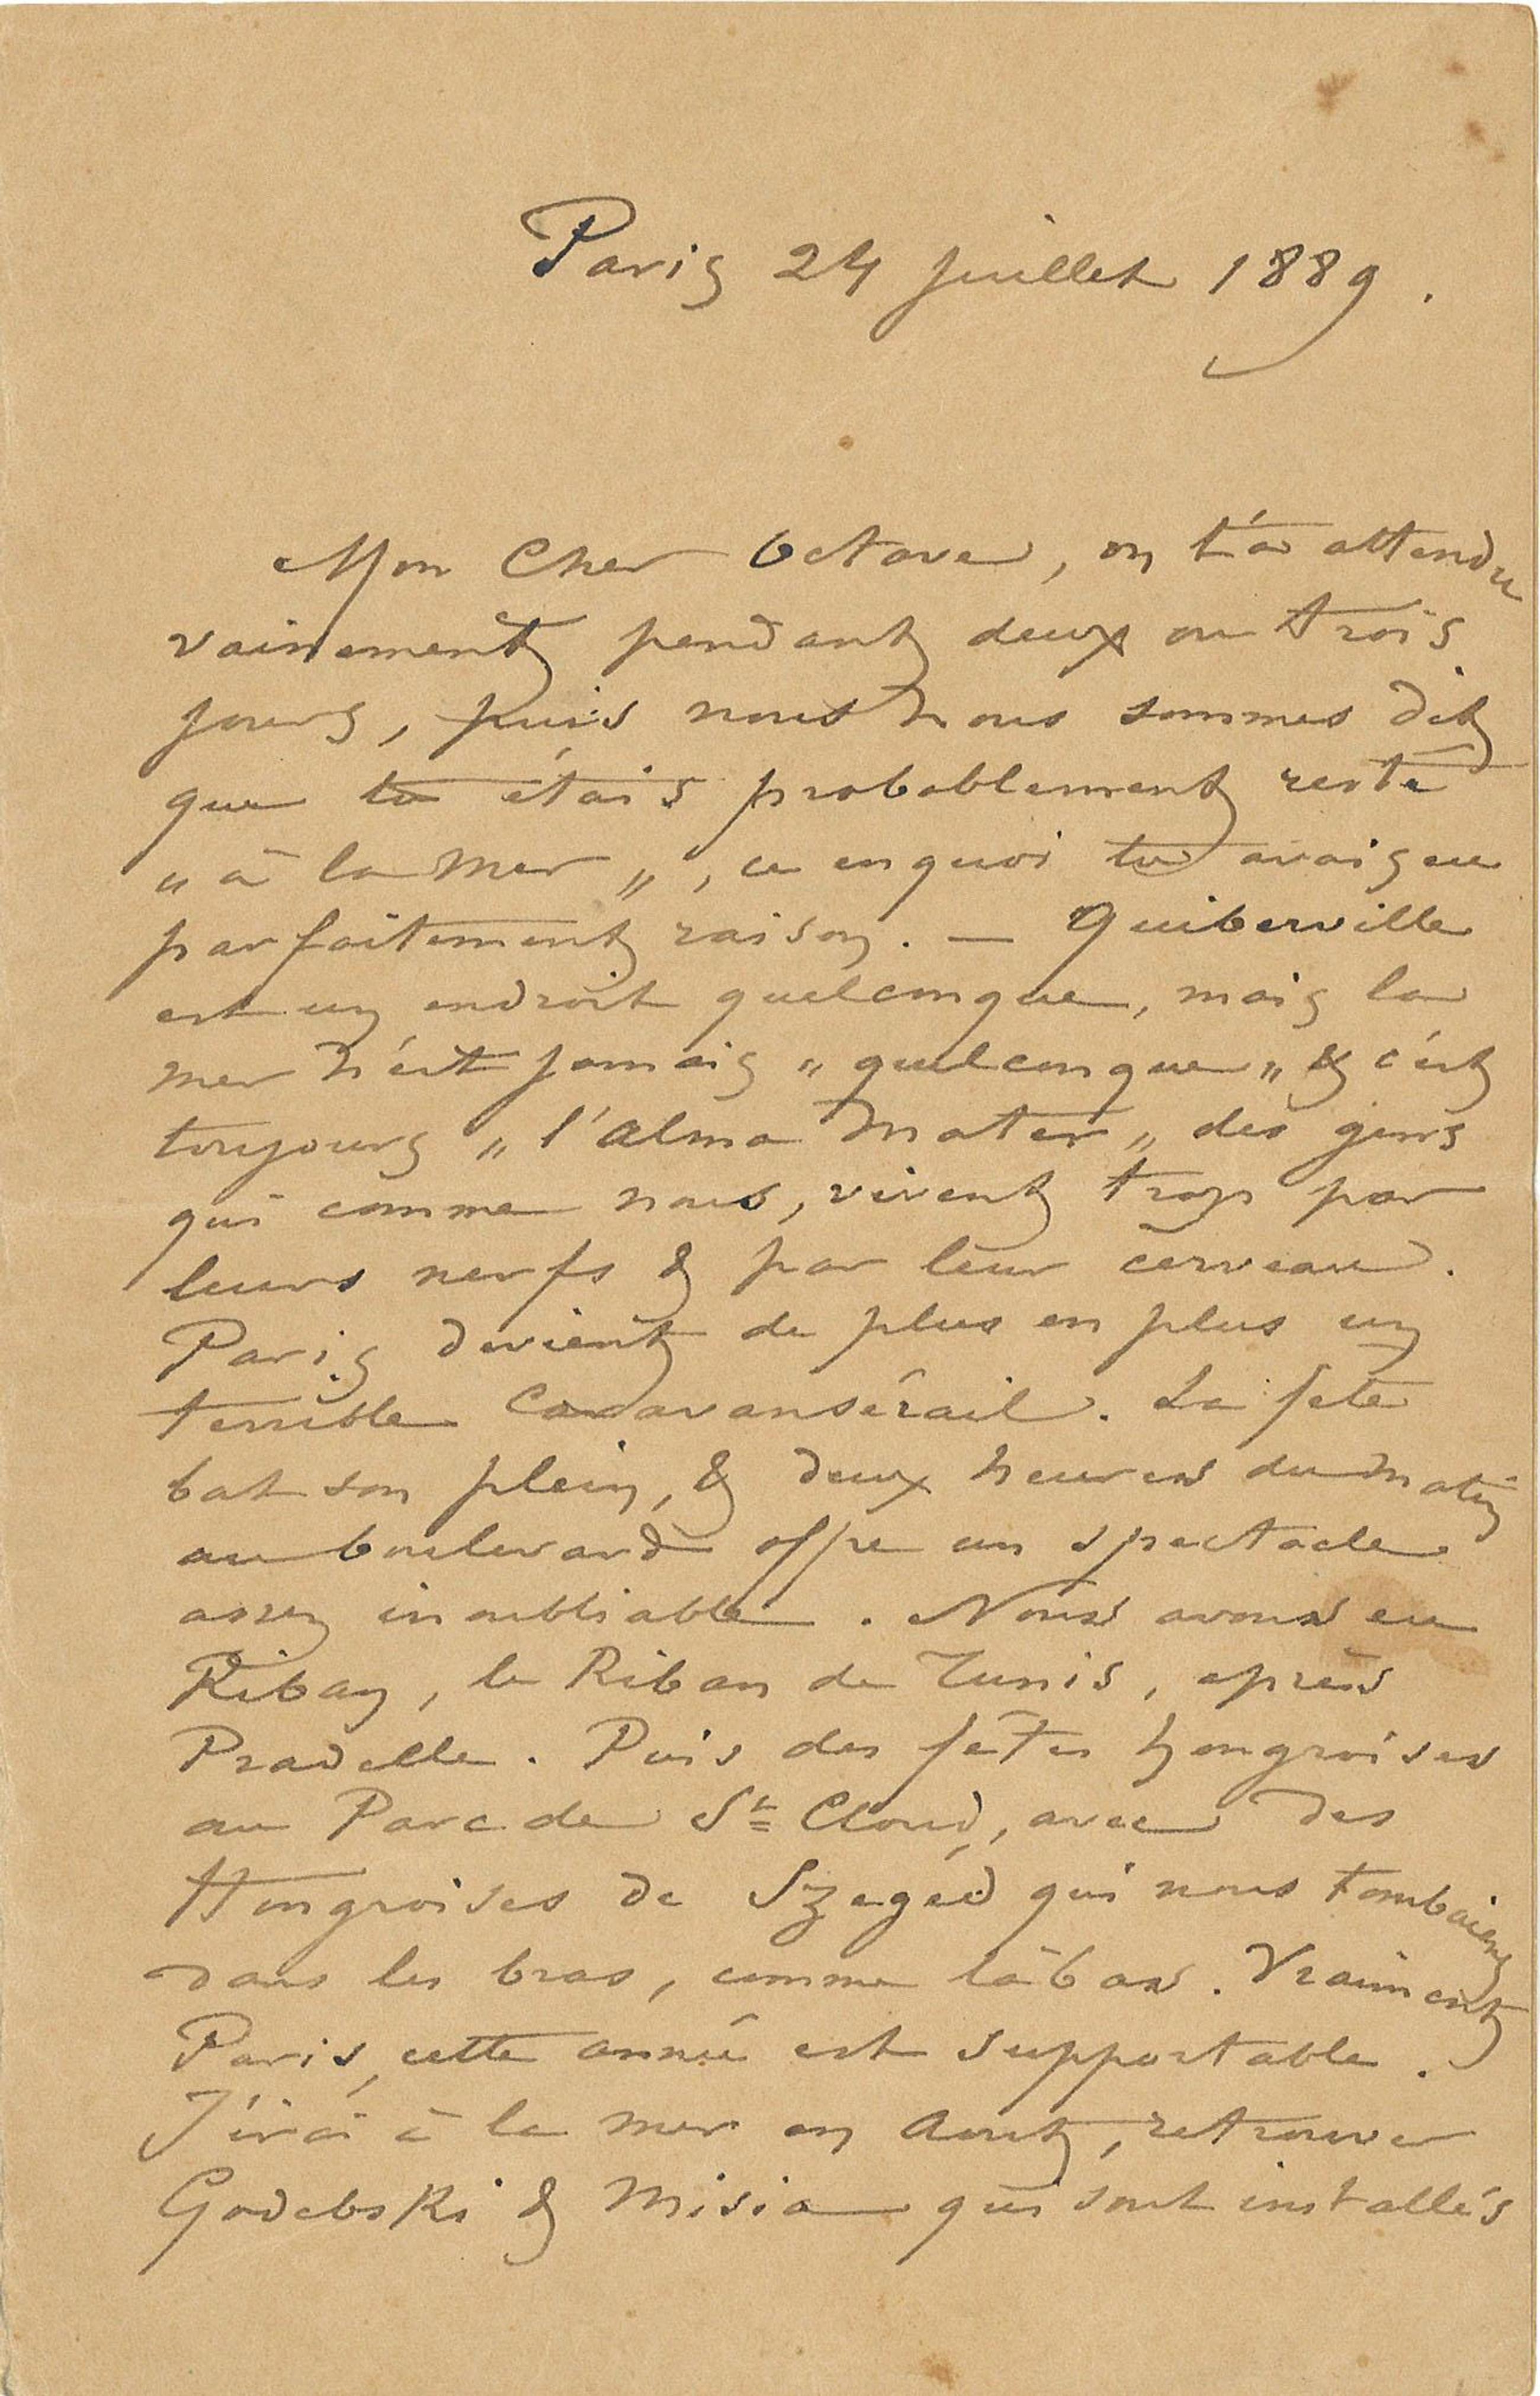 Paris 24 Juillet 1889.
Mon Cher Octave, on t'a attendu
vainement pendant deux ou trois
jours, puis nous nous sommes dit
que tu étais probablement resté
„ à la Mer „, ce en quoi tu avais eu
parfaitement raison. — Quiberville
est un endroit quelconque, mais la
mer n'est jamais „ quelconque „ & c'est
toujours „ l'Alma Mater „ des gens
qui comme nous, vivent trop par
leurs nerfs & par leur cerveau.
Paris devient de plus en plus un
terrible Caravansérail. La fête
bat son plein, & deux heures du matin
au boulevard offre un spectacle
assez inoubliable. Nous avons eu
Riban, le Riban de Tunis, après
Pradelle. Puis des fêtes hongroises
au Parc de St Cloud, avec des
Hongroises de Szegéd qui nous tombaient
dans les bras, comme là bas. Vraiment
Paris, cette année est supportable.
J'irai à la mer en Aout, retrouver
Godebski & Misia qui sont installés